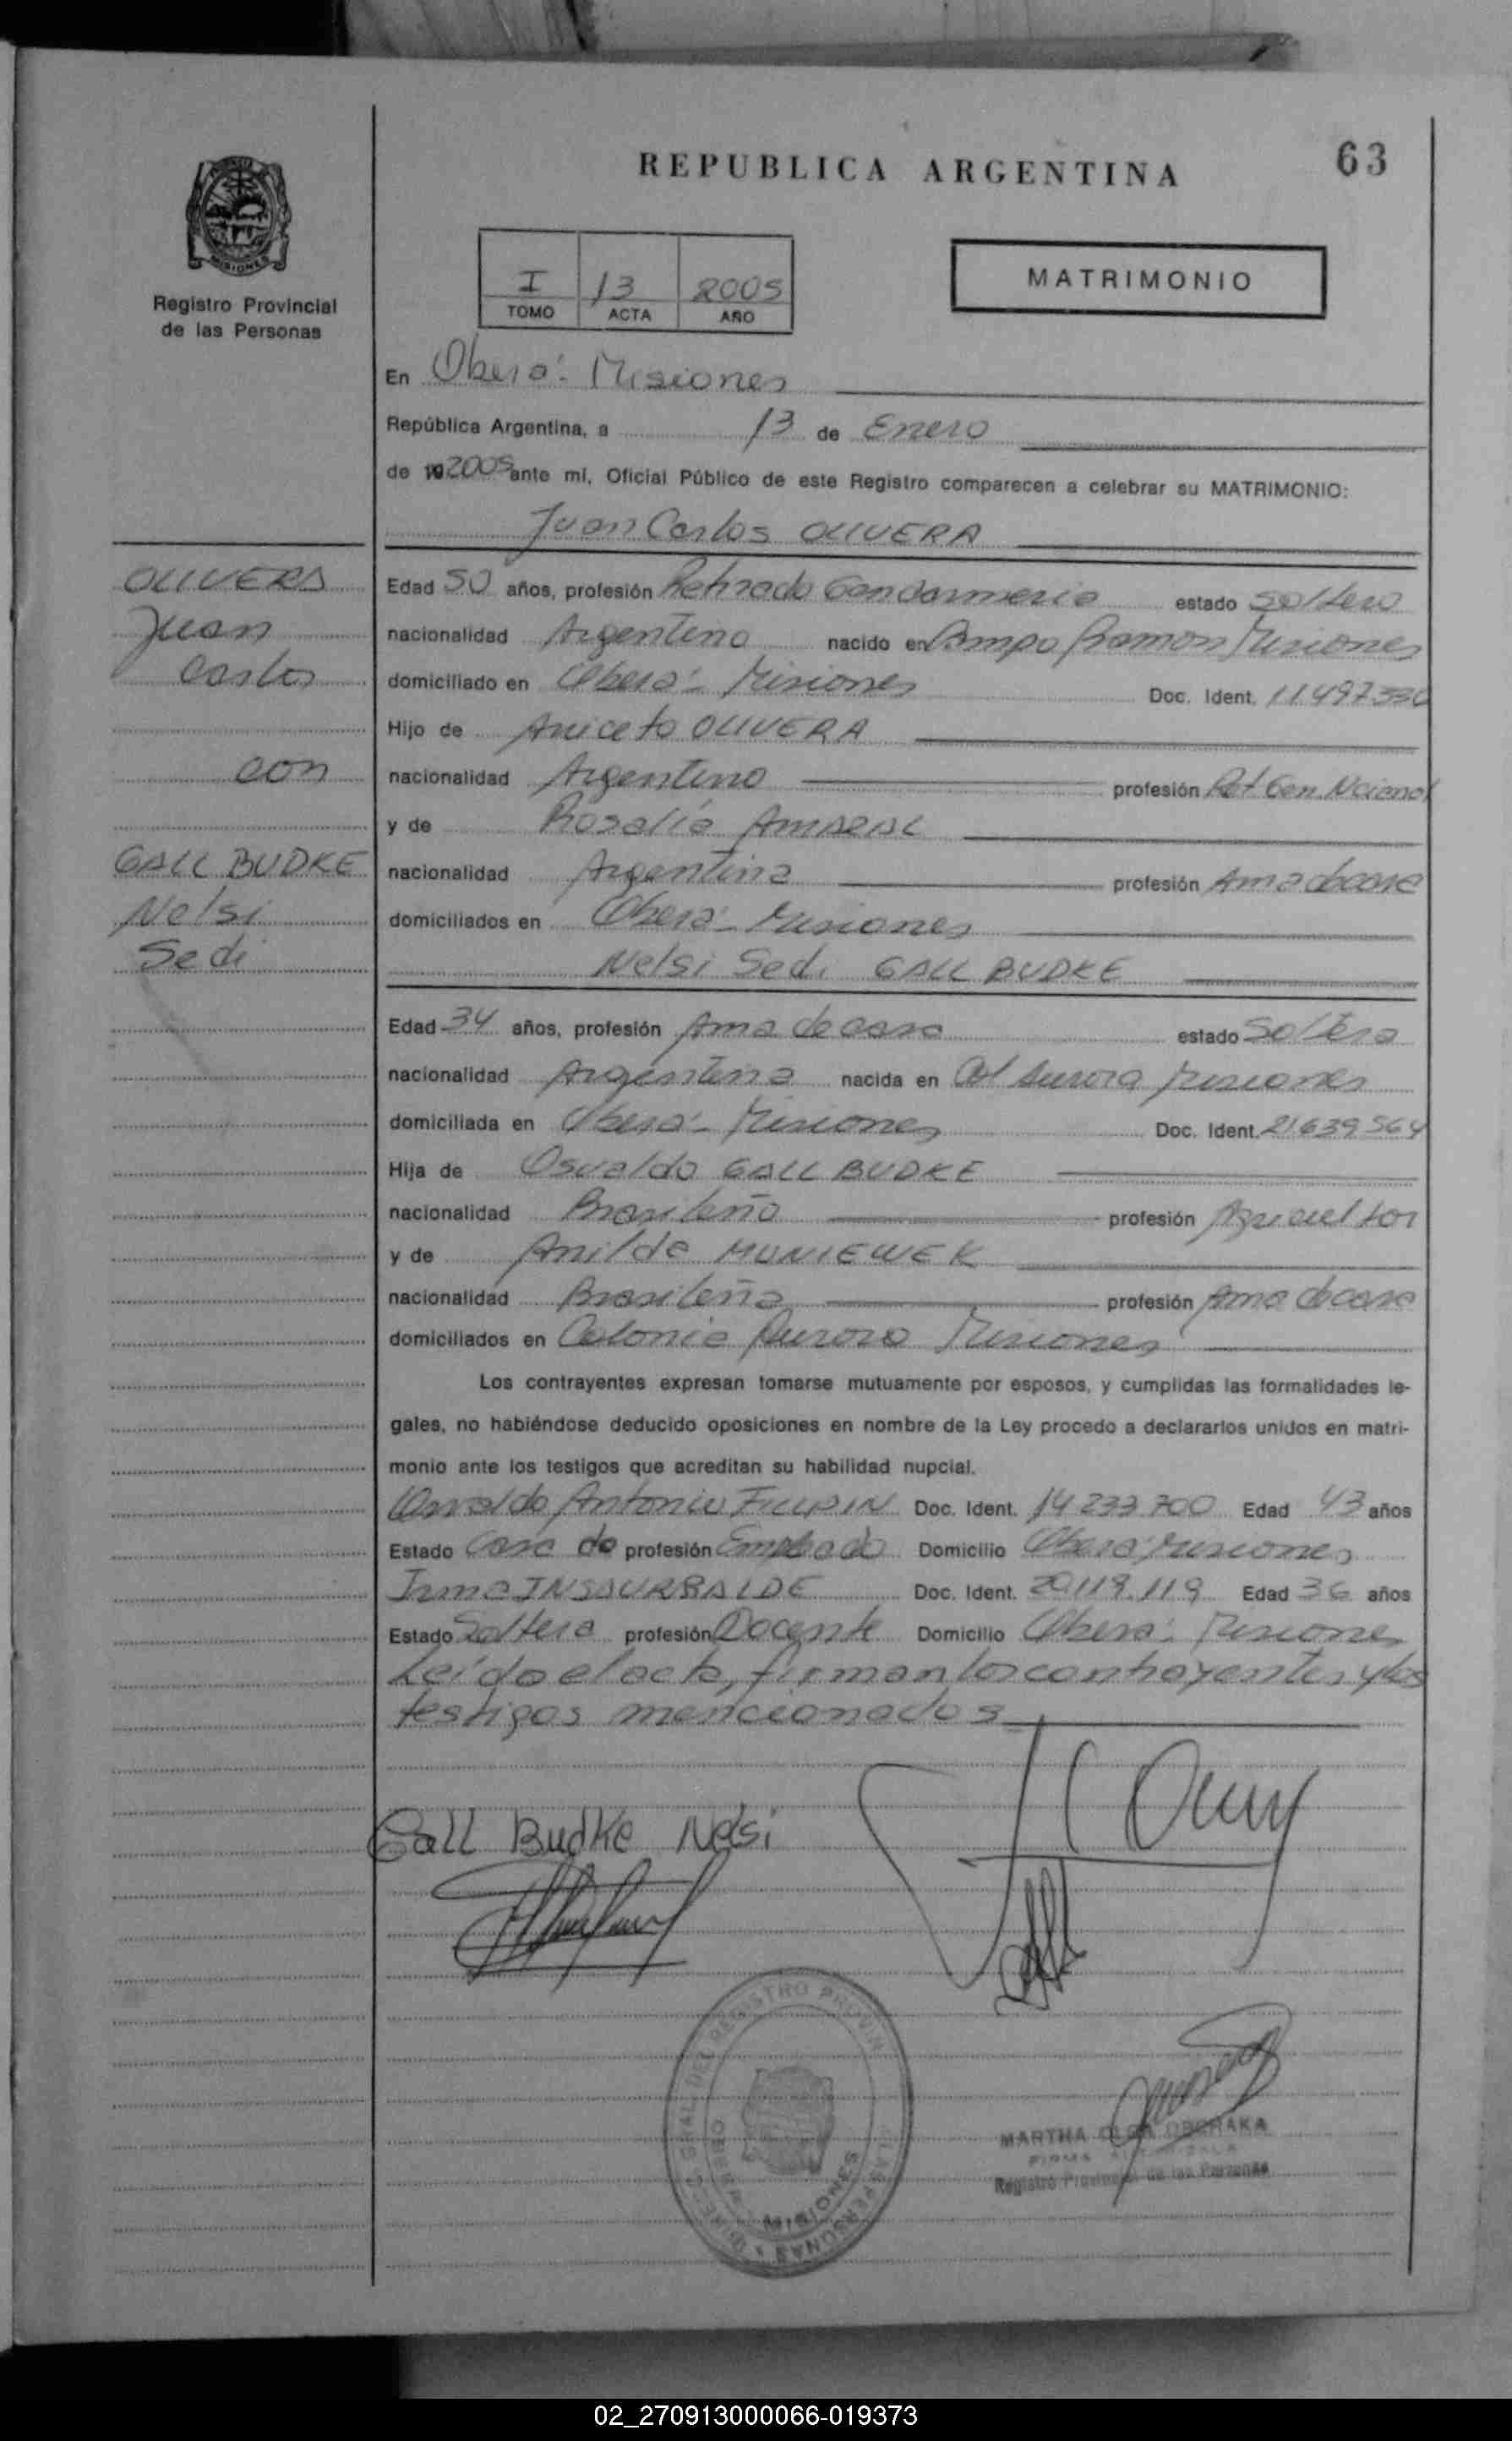 REPUBLICA ARGENTINA
63
MISIONES
Registro Provincial
de las Personas
I 13 2005
TOMO ACTA AÑO
MATRIMONIO
En Oberá - Misiones
República Argentina, a 13 de Enero
de 19 2005 ante mí, Oficial Público de este Registro comparecen a celebrar su MATRIMONIO:
Juan Carlos OLIVERA
OLIVERA
Juan
Carlos
con
GALL BUDKE
Nelsi
Sedi
Edad 50 años, profesión Retirado Gendarmeria estado soltero
nacionalidad Argentino nacido en Campo Ramon Misiones
domiciliado en Oberá - Misiones Doc. Ident. 11.497.330
Hijo de Aniceto OLIVERA
nacionalidad Argentino profesión Ret Gen Nacional
y de Rosalía AMARAL
nacionalidad Argentina profesión Ama de casa
domiciliados en Oberá - Misiones
Nelsi Sedi GALL BUDKE
Edad 34 años, profesión Ama de casa estado Soltera
nacionalidad Argentina nacida en Col Aurora Misiones
domiciliada en Oberá - Misiones Doc. Ident. 21.639.564
Hija de Osvaldo GALL BUDKE
nacionalidad Brasileño profesión Agricultor
y de Anilda MUNIEWEK
nacionalidad Brasileña profesión Ama de casa
domiciliados en Colonia Aurora Misiones
Los contrayentes expresan tomarse mutuamente por esposos, y cumplidas las formalidades le-
gales, no habiéndose deducido oposiciones en nombre de la Ley procedo a declararlos unidos en matri-
monio ante los testigos que acreditan su habilidad nupcial.
Osvaldo Antonio FILIPIN Doc. Ident. 14 233 700 Edad 43 años
Estado Casado profesión Empleado Domicilio Oberá Misiones
Irma INSAURRALDE Doc. Ident. 20.119.119 Edad 36 años
Estado Soltera profesión Docente Domicilio Oberá - Misiones
Leído el acta, firman los contrayentes y los
testigos mencionados
Gall Budke Nelsi
MARTHA OLGA
Registro Provincial de las Personas
MISIONES
02_270913000066-019373